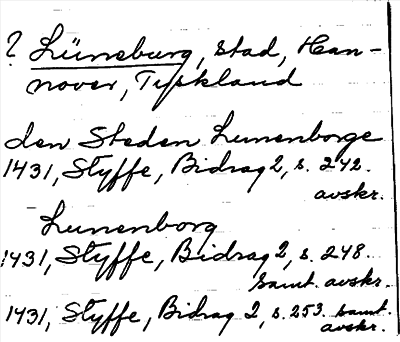 ? Lüneburg, stad, Han-
nover, Tyskland
den Steden Lunenborge
1431, Styffe, Bidrag 2, s. 242.
avskr.
Lunenborg
1431, Styffe, Bidrag 2, s. 248.
samt. avskr.
1431, Styffe, Bidrag 2, s. 253. samt.
avskr.